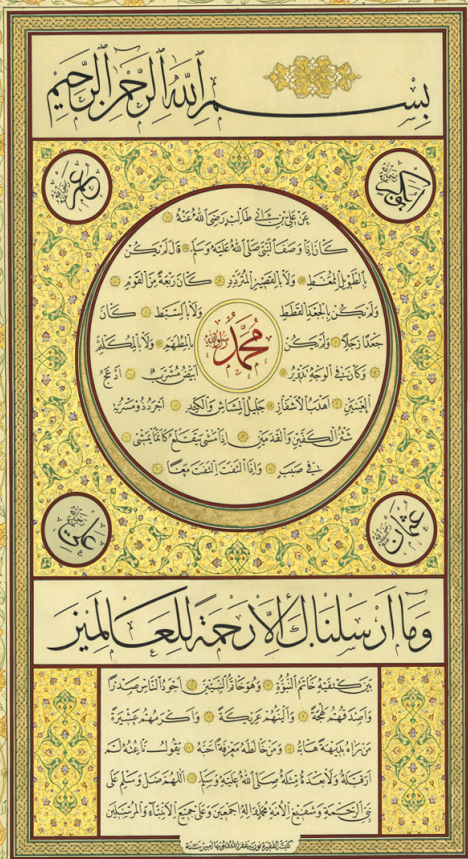 بسم الله الرحمن الرحيم
ابوبكر رضي الله عنه
عمر رضي الله عنه
عن علي بن ابي طالب رضي الله عنه
كان اذا وصف النبي صلى الله عليه وسلم قال لم يكن
بالطويل الممغط ولا بالقصير المتردد كان ربعة من القوم
ولم يكن بالجعد القطط ولا بالسبط كان
جعدا رجلا ولم يكن بالمطهم ولا بالمكلثم
محمد رسول الله
وكان في الوجه تدوير ابيض مشرب ادعج
العينين اهدب الاشفار جليل المشاش والكتد اجرد ذو مسربة
شثن الكفين والقدمين اذا مشى يتقلع كانما يمشي
في صبب واذا التفت التفت معا
عثمان رضي الله عنه
علي رضي الله عنه
وما ارسلناك الا رحمة للعالمين
بين كتفيه خاتم النبوة وهو خاتم النبيين اجود الناس صدرا
واصدقهم لهجة والينهم عريكة واكرمهم عشيرة
من رآه بديهة هابه ومن خالطه معرفة احبه يقول ناعته لم
ار قبله ولا بعده مثله صلى الله عليه وسلم اللهم صل وسلم على
نبي الرحمة وشفيع الامة محمد وآله اجمعين وعلى جميع الانبياء والمرسلين